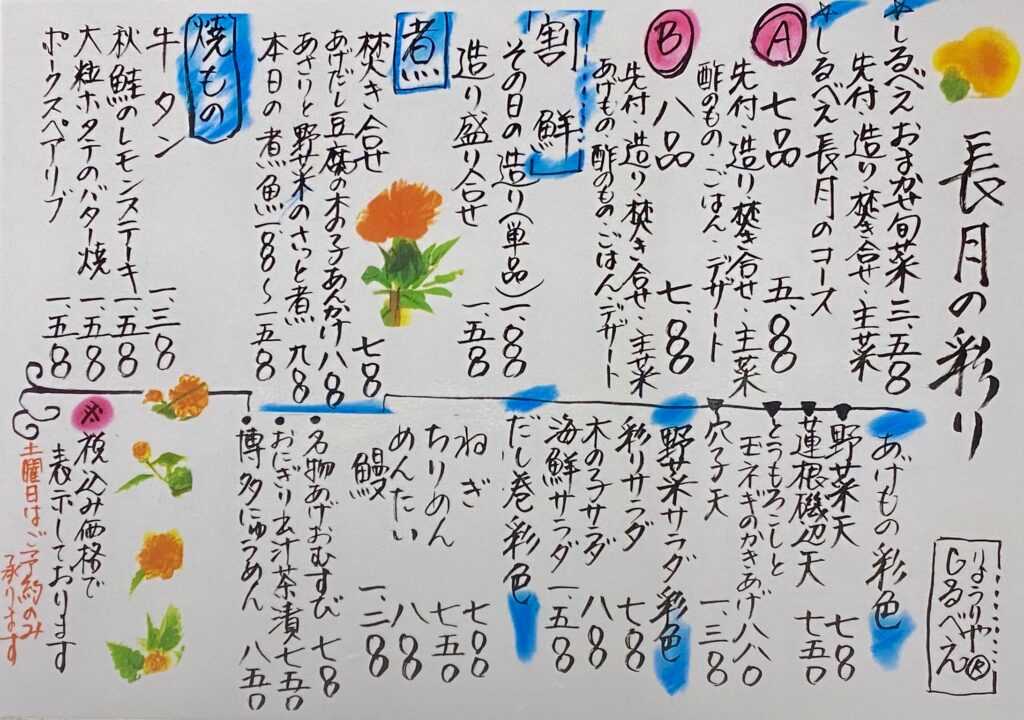 長月の彩り
りょうりや
しるべえ
☆しるべえおまかせ旬菜 三、五〇〇
先付・造り・焚き合せ・主菜
☆しるべえ長月のコース
A 七品 五、〇〇〇
先付・造り・焚き合せ・主菜
酢のもの・ごはん・デザート
B 八品 七、〇〇〇
先付・造り・焚き合せ・主菜
あげもの・酢のもの・ごはん・デザート
割鮮
その日の造り(単品) 一、〇〇〇
造り盛り合せ 一、五〇〇
煮
焚き合せ 七〇〇
あげだし豆腐の木の子あんかけ 八〇〇
あさりと野菜のさっと煮 九〇〇
本日の煮魚 一〇〇〇〜一五〇〇
焼もの
牛タン 一、三〇〇
秋鮭のレモンステーキ 一、五〇〇
大粒ホタテのバター焼 一、五〇〇
ポークスペアリブ 一、五〇〇
あげもの彩色
野菜天 七〇〇
蓮根磯辺天 七五〇
とうもろこしと
玉ネギのかきあげ 八八〇
穴子天 一、三〇〇
野菜サラダ彩色
彩りサラダ 七〇〇
木の子サラダ 八〇〇
海鮮サラダ 一、五〇〇
だし巻彩色
ねぎ 七〇〇
ちりめん 七五〇
めんたい 八〇〇
鰻 一、二〇〇
・名物あげおむすび 七〇〇
・おにぎり出汁茶漬 七五〇
・博多にゅうめん 八五〇
※税込み価格で
表示しております
土曜日はご予約のみ
承ります